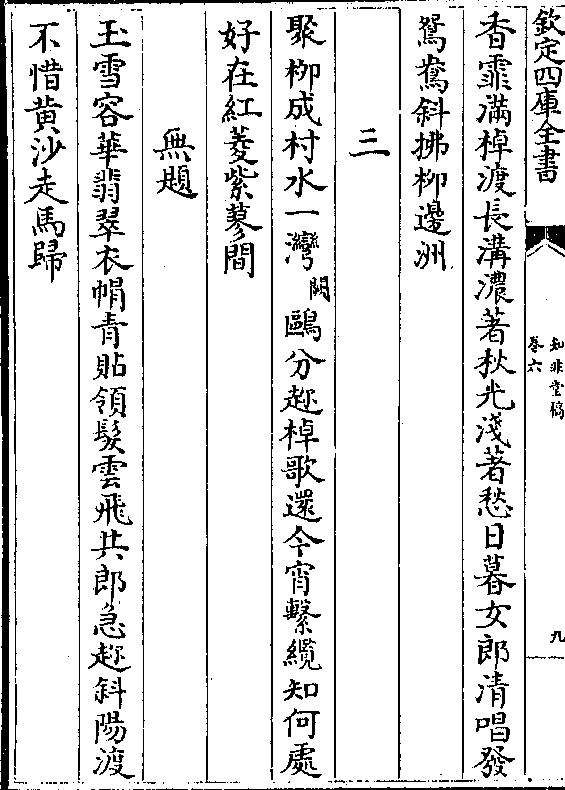 欽定四庫全書
知非堂稿
卷六
九
香霏滿棹渡長溝濃著秋光淺著愁日暮女郎清唱發
鴛鴦斜拂柳邊洲
三
聚柳成村水一灣闕鷗分趂棹歌還今宵繫纜知何處
好在紅菱紫蓼間
無題
玉雪容華翡翠衣帽青貼領髮雲飛共郎急趂斜陽渡
不惜黄沙走馬歸